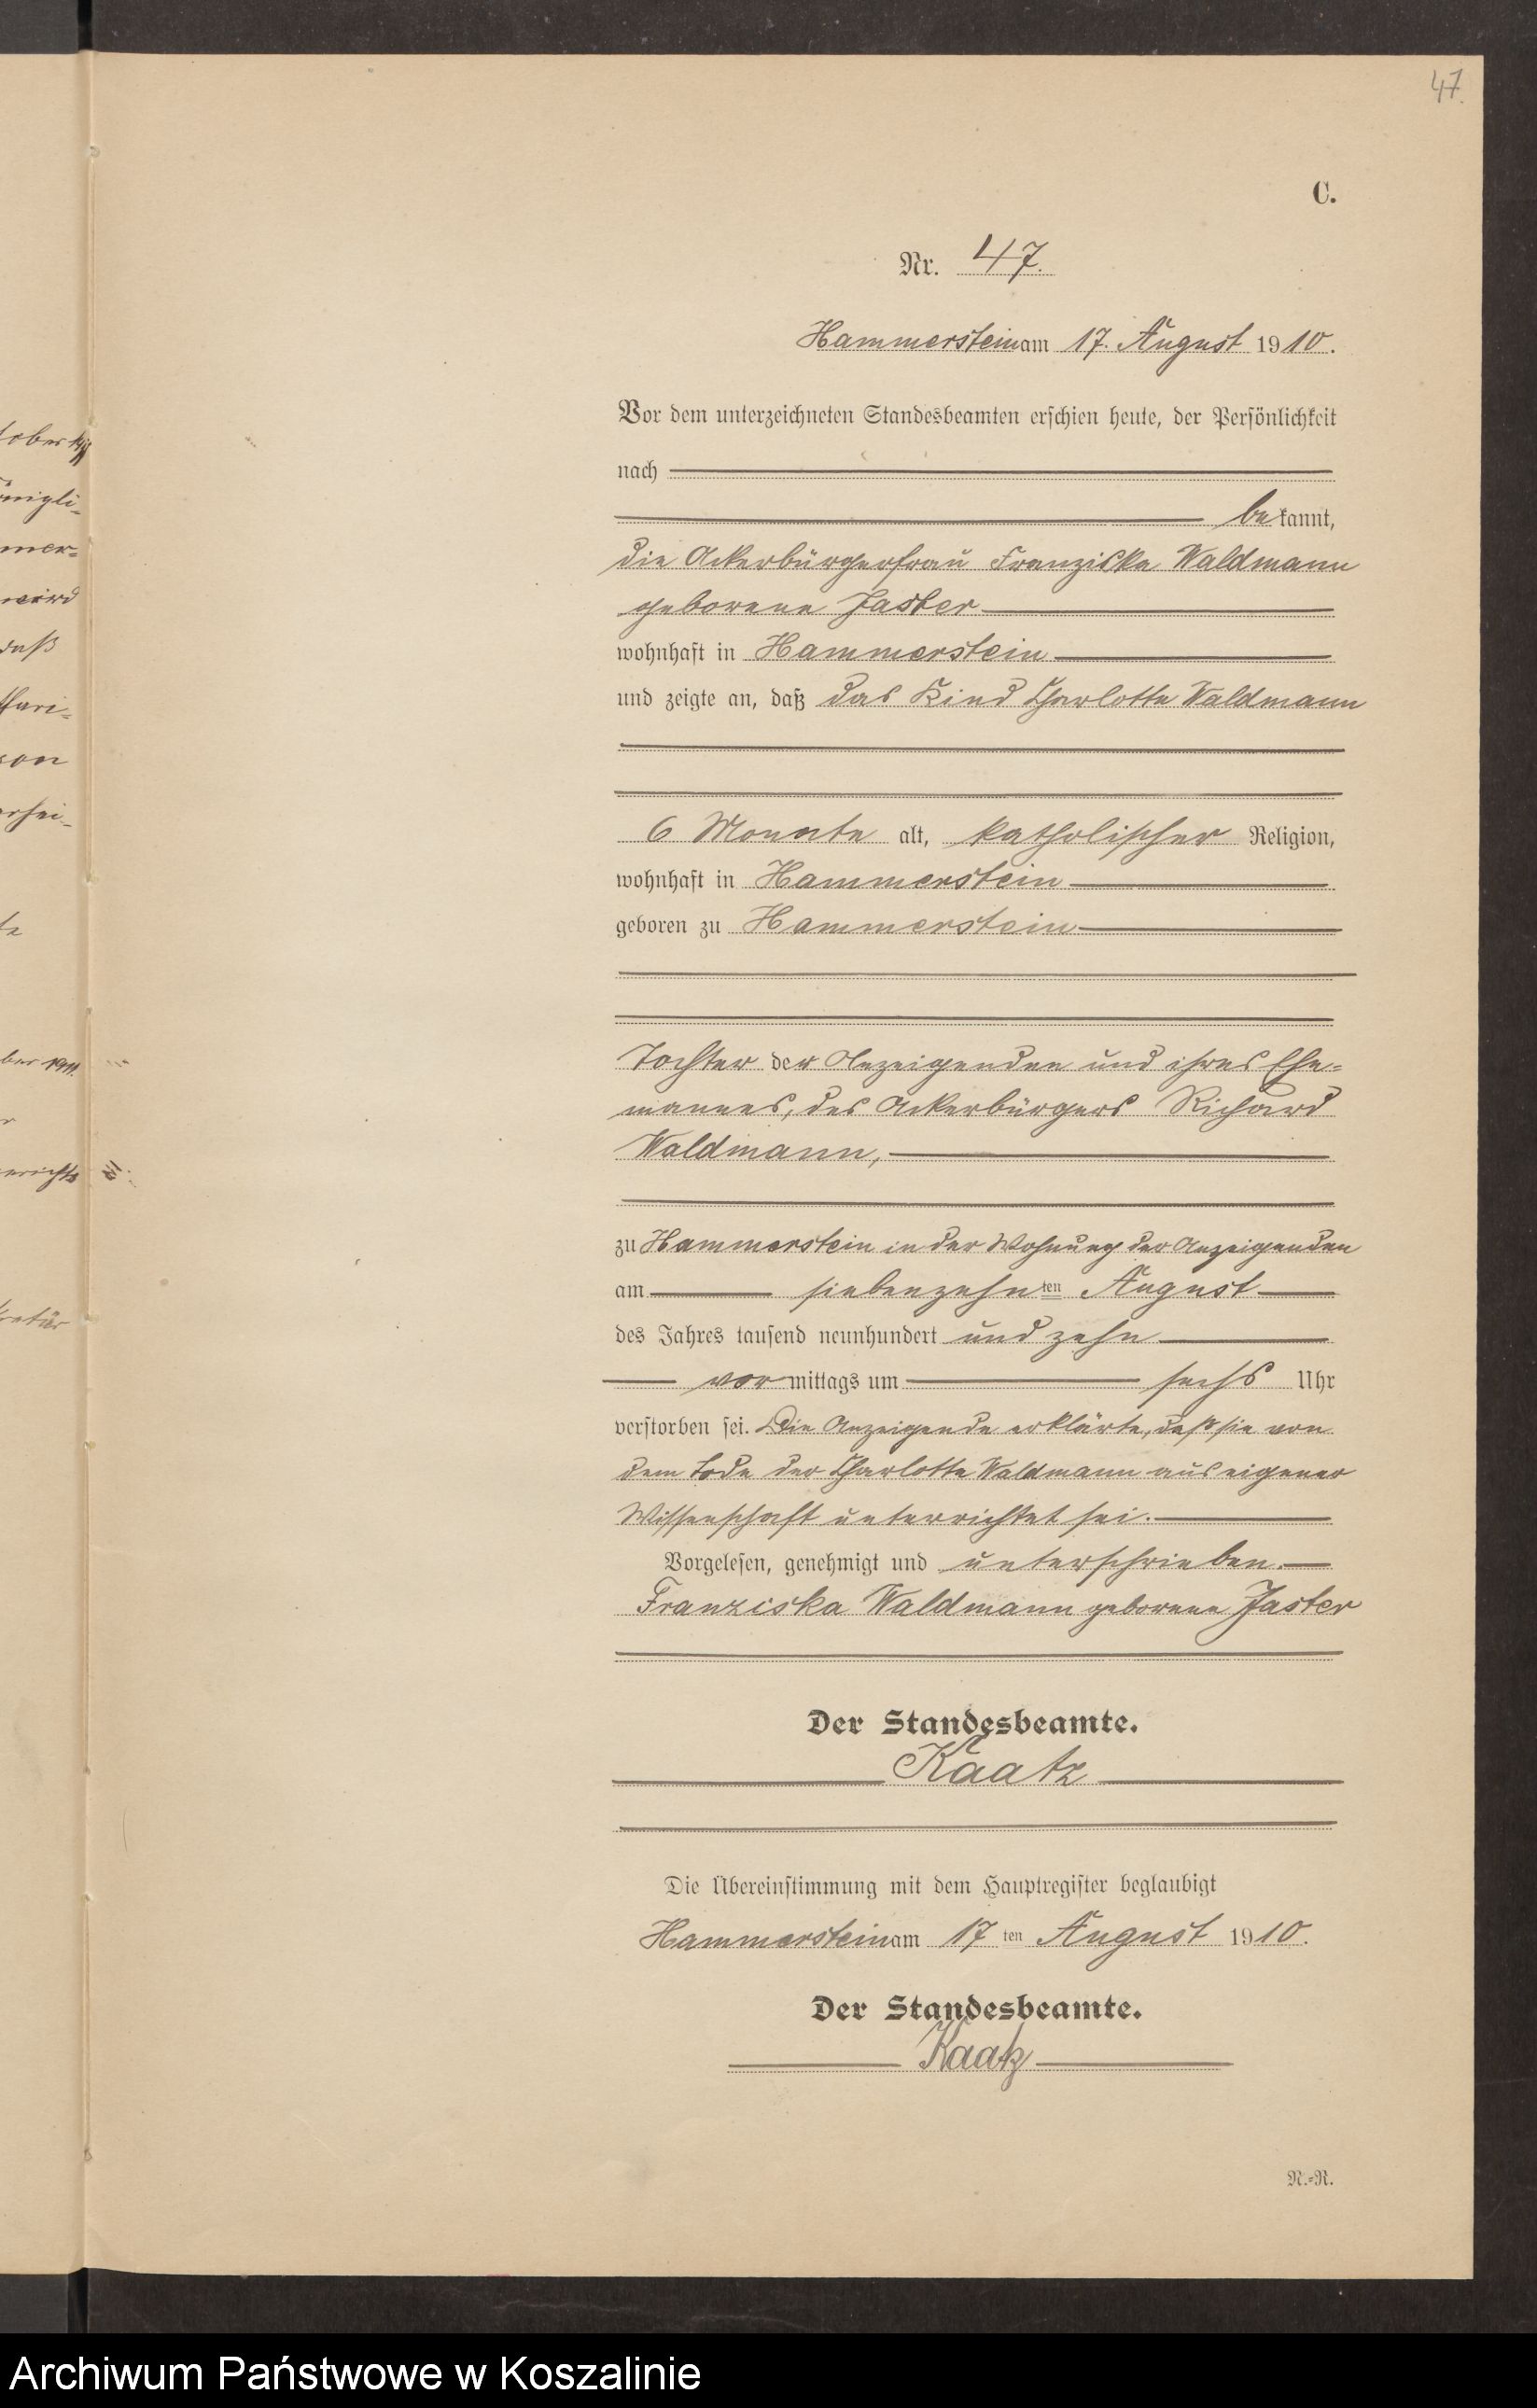 47.
C.
Nr. 47.
Hammerstein am 17. August 1910.
Vor dem unterzeichneten Standesbeamten erschien heute, der Persönlichkeit
nach
bekannt,
die Ackerbürgerfrau Franziska Waldmann
geborene Jaster
wohnhaft in Hammerstein
und zeigte an, daß das Kind Charlotte Waldmann
6 Monate alt, katholischer Religion,
wohnhaft in Hammerstein
geboren zu Hammerstein
Tochter der Anzeigenden und ihres Ehe-
mannes, des Ackerbürgers Richard
Waldmann,
zu Hammerstein in der Wohnung der Anzeigenden
am siebenzehnten August
des Jahres tausend neunhundert und zehn
vormittags um sechs Uhr
verstorben sei. Die Anzeigende erklärte, daß sie von
dem Tode der Charlotte Waldmann aus eigener
Wissenschaft unterrichtet sei.
Vorgelesen, genehmigt und unterschrieben.
Franziska Waldmann geborene Jaster
Der Standesbeamte.
Kaatz
Die Übereinstimmung mit dem Hauptregister beglaubigt
Hammerstein am 17ten August 1910.
Der Standesbeamte.
Kaatz
N.-R.
daß
Archiwum Państwowe w Koszalinie